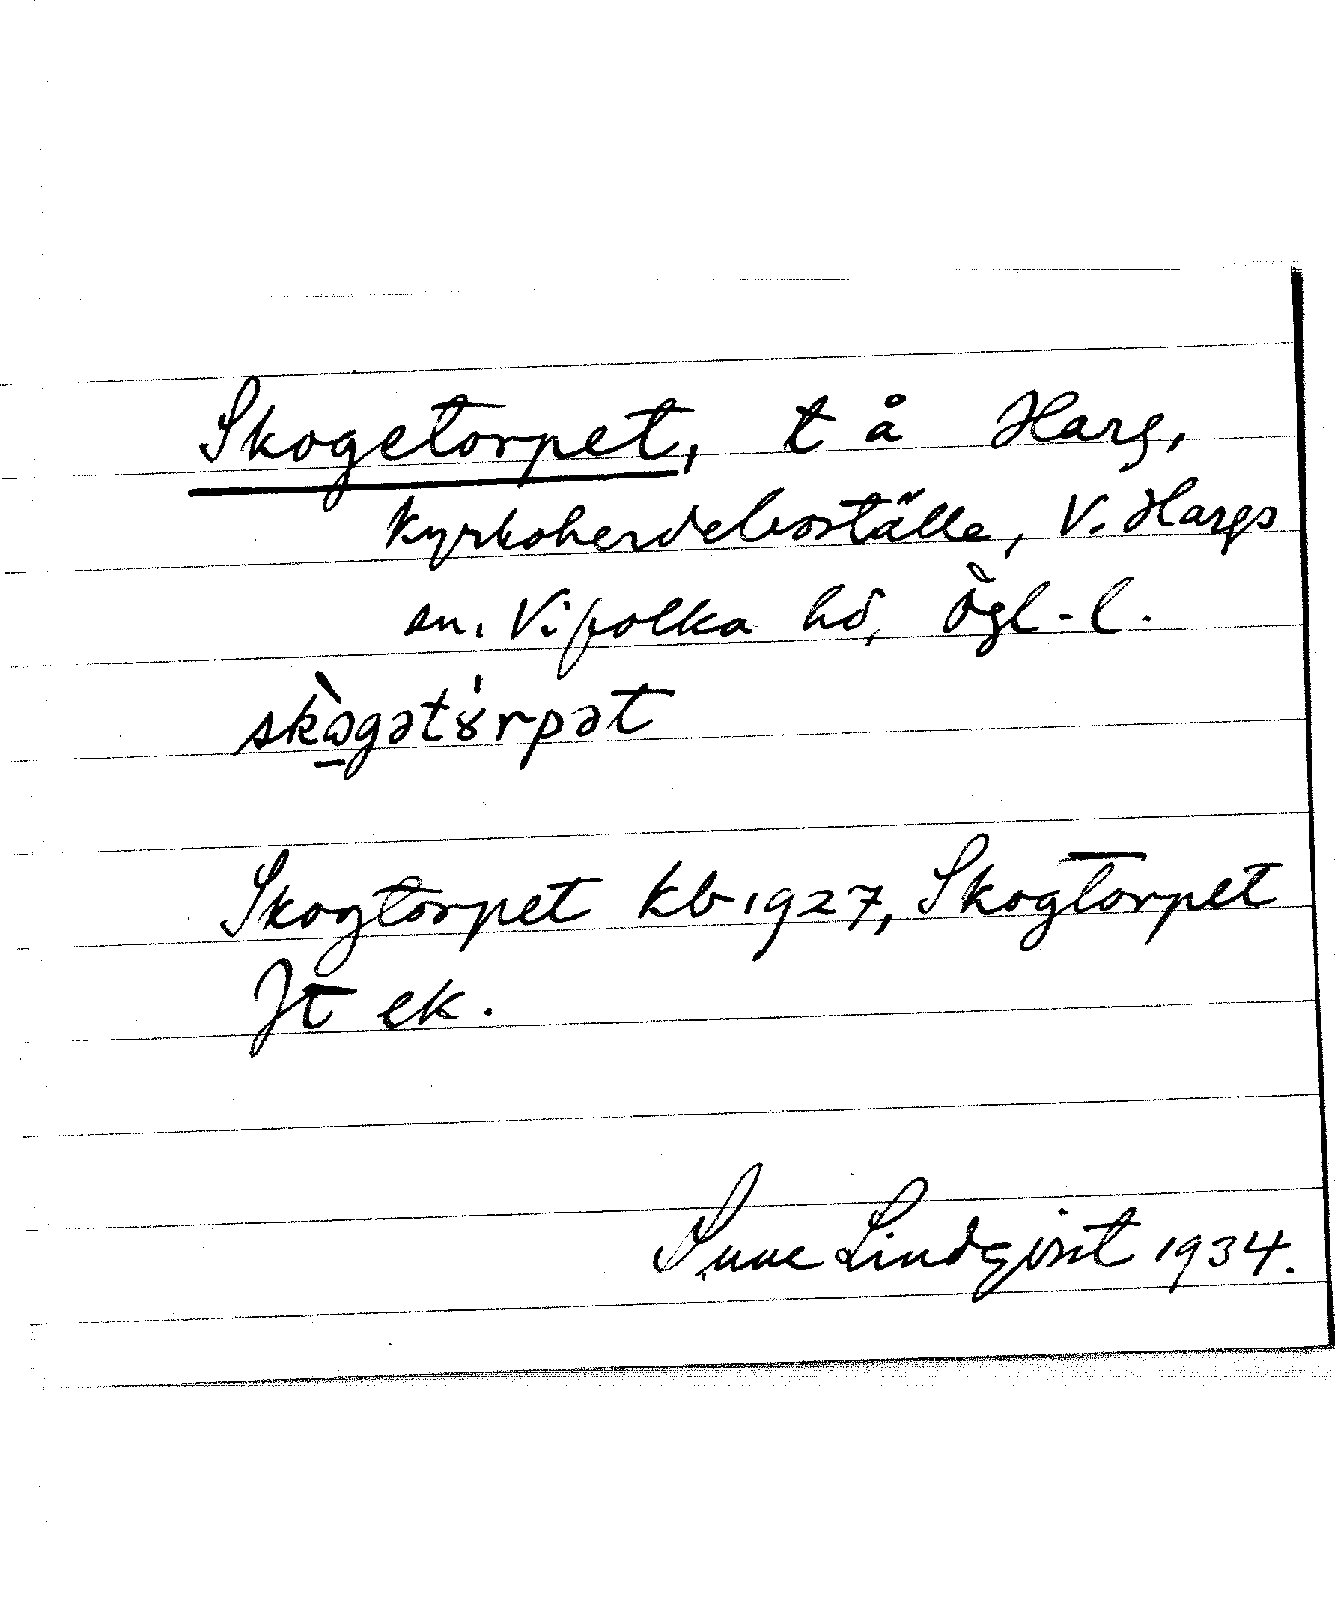 Skogetorpet, t å Harg,
kyrkoherdeboställe, V. Hargs
sn. Vifolka hd, Ögl. l.
skògətórpət
Skogtorpet kb 1927, Skogtorpet
Jt ek.
Sune Lindqvist 1934.